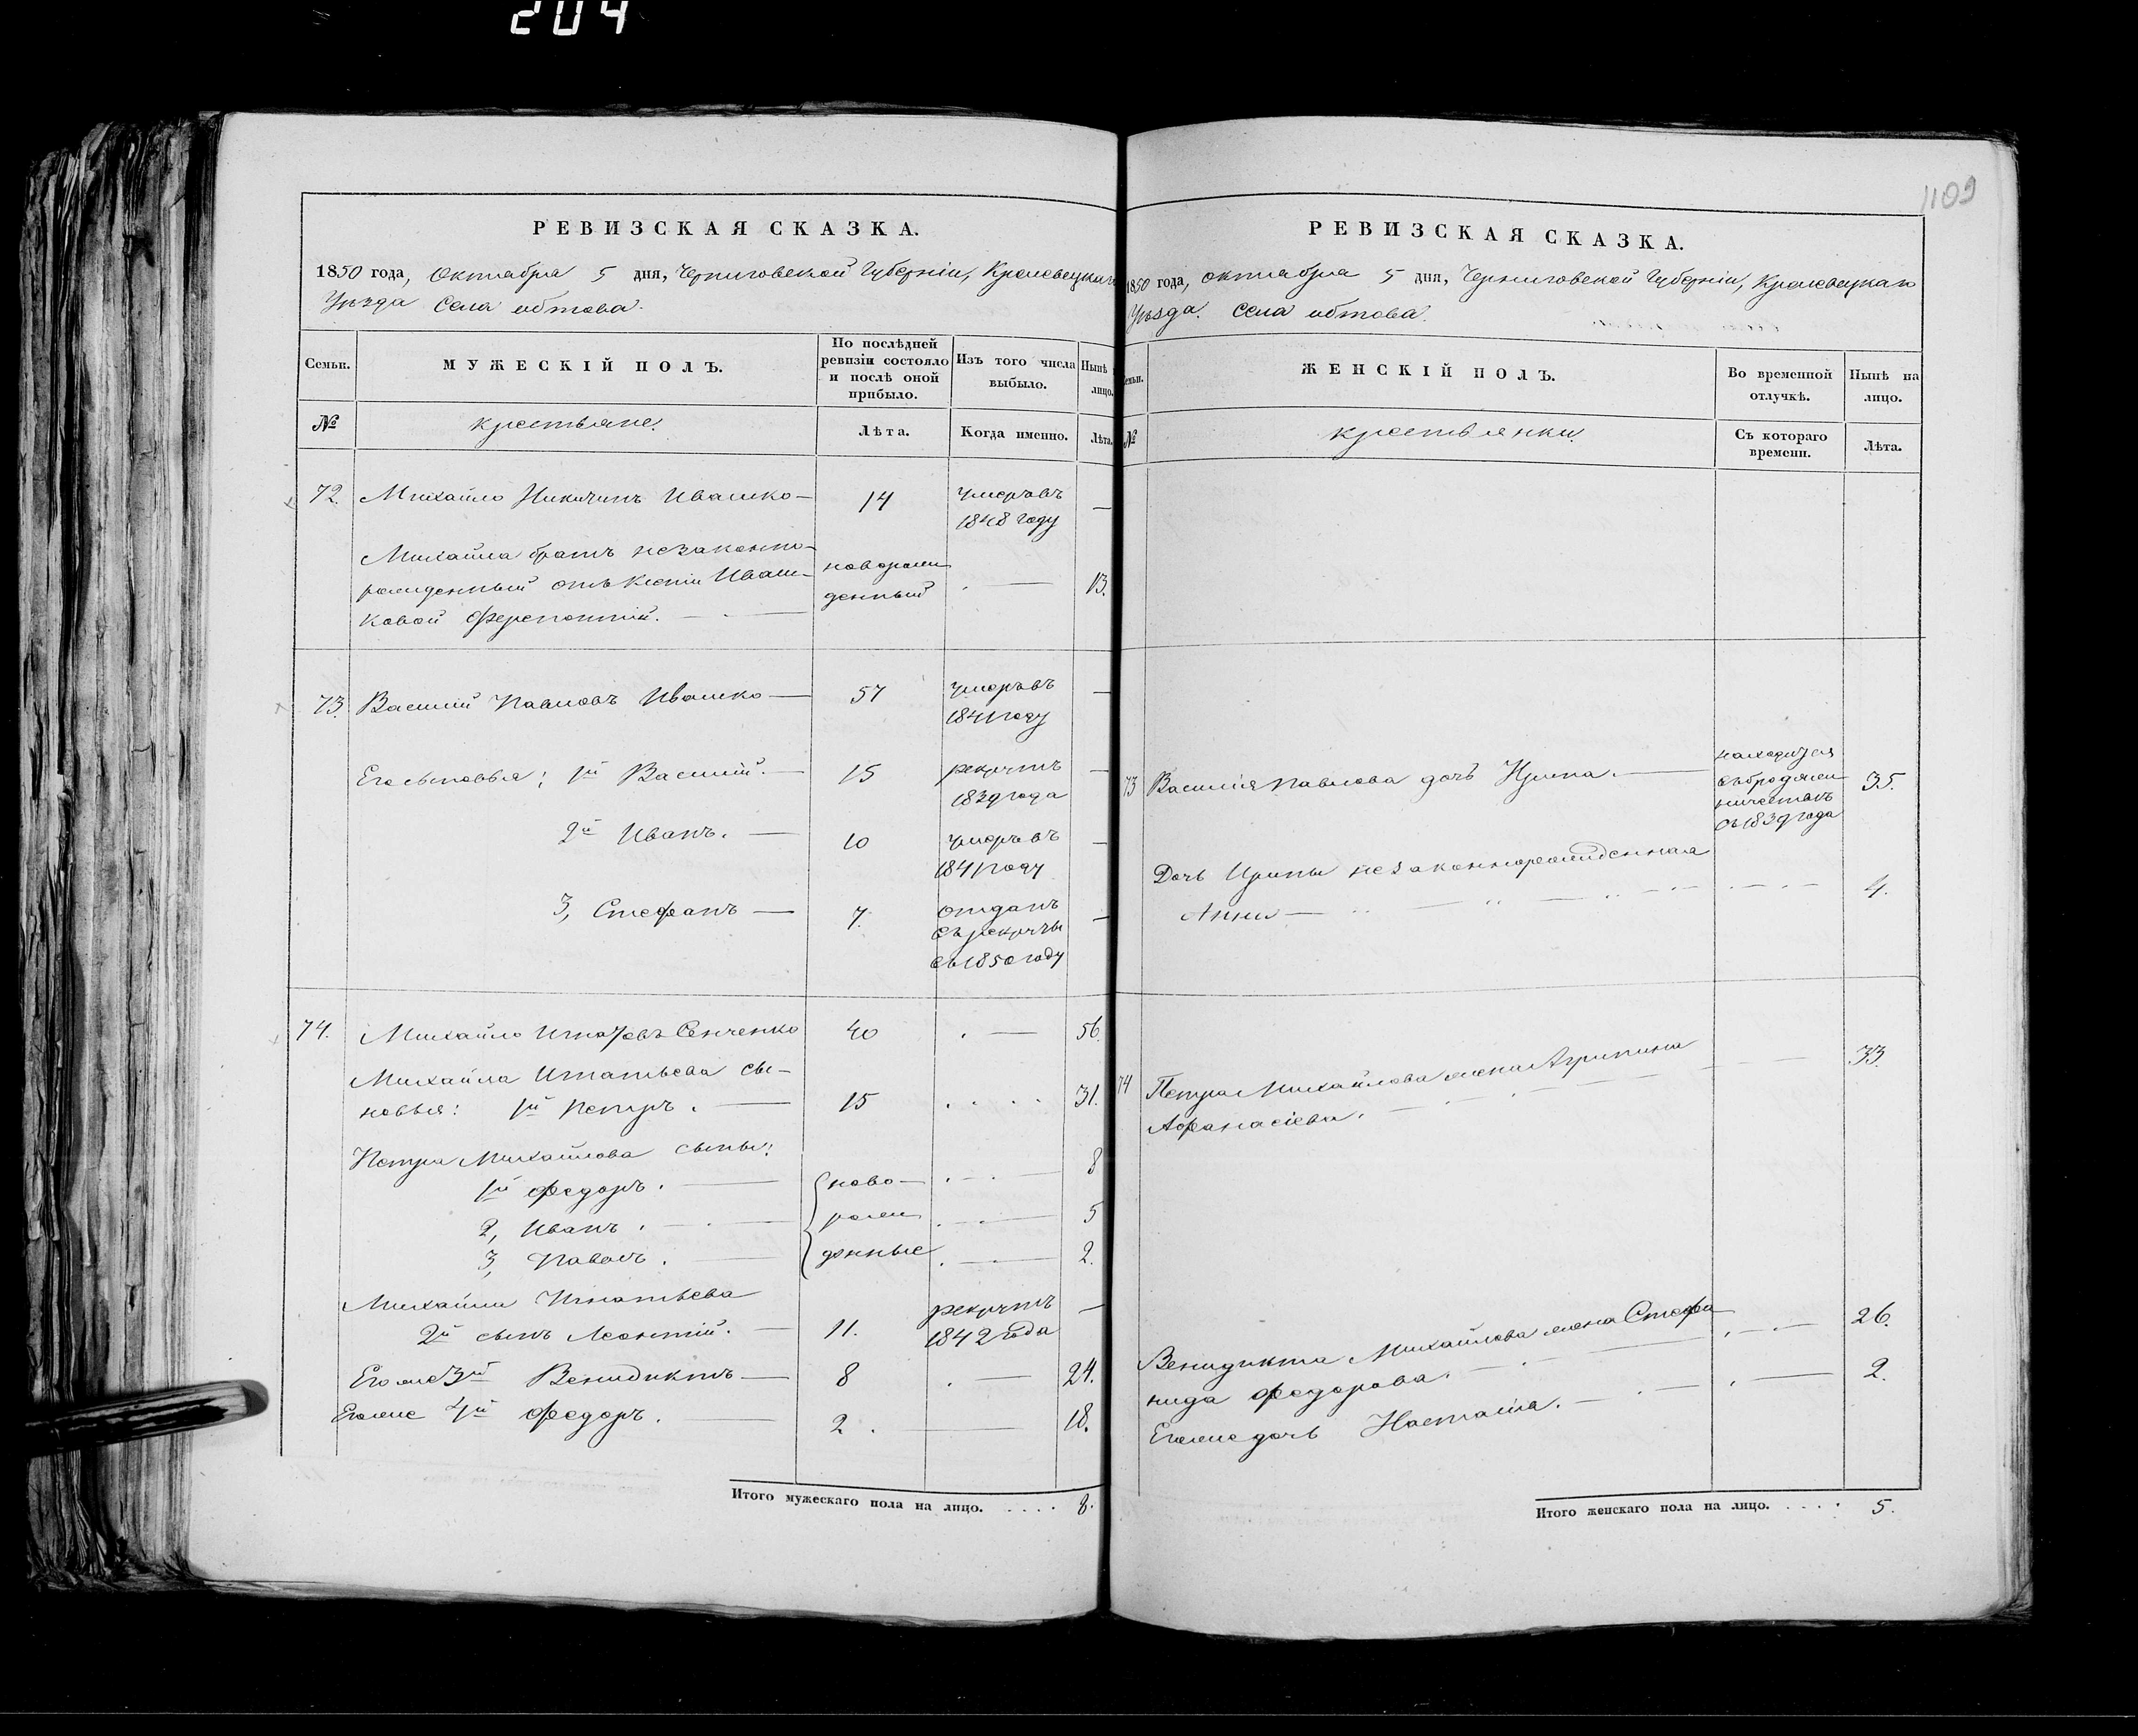 204
1109
РЕВИЗСКАЯ СКАЗКА.
1850 года, Октября 5 дня, Черниговской Губерніи, Кролевецкаго
Уѣзда Села обтова.
Семьи.
МУЖЕСКІЙ ПОЛЪ.
По послѣдней
ревизіи состояло
и послѣ оной
прибыло.
Изъ того числа
выбыло.
Нынѣ
лицо.
№
крестьяне.
Лѣта.
Когда именно.
Лѣта.
72. Михайло Никитинъ Ивашко — 14 умеръ въ —
1848 году
Михайла братъ незаконно-
рожденный отъ Ксеніи Иваш-
ковой Ферепонтій. — новорож
денный . — 13.
73. Василій Павловъ Ивашко — 57 умеръ въ —
1841 году
Его сыновья: 1й Василій. — 15 рекрутъ —
1839 года
2й Иванъ. — 10 умеръ въ —
1841 году
3, Стефанъ — 7. отданъ —
въ рекруты
въ 1850 году
74. Михайло Игнатовъ Сенченко 40 . — 56.
Михайла Игнатьева сы-
новья: 1й Петръ. — 15 . . . . 31.
Петра Михайлова сыны:
1й Федоръ. — ново — . — . 8
2, Иванъ. — рож . — 5
3, Павелъ. — денные . — 2.
Михайлы Игнатьева
2й сынъ Леонтій. — 11. рекрутъ —
1842 года
Его же 3й Венидиктъ — 8 . — 24.
Его же 4й Федоръ. — 2. — 18.
Итого мужескаго пола на лицо. . . . . 8.
РЕВИЗСКАЯ СКАЗКА.
1850 года, октября 5 дня, Черниговской Губерніи, Кролевецкаго
Уѣзда. Села обтова.
Семьи.
ЖЕНСКІЙ ПОЛЪ.
Во временной
отлучкѣ.
Нынѣ на
лицо.
№
крестьянки
Съ котораго
времени.
Лѣта.
73 Василія Павлова дочь Ирина. — находится
въ бродяж
ничествѣ
съ 1839 года
35.
Дочь Ирины незаконнорожденная
Анна — 4.
74 Петра Михайлова жена Агрипина
Афанасіева. — 33.
Венидикта Михайлова жена Стефа
нида Федорова. — 26.
Его же дочь Настасія. — 2.
Итого женскаго пола на лицо. . . . . 5.